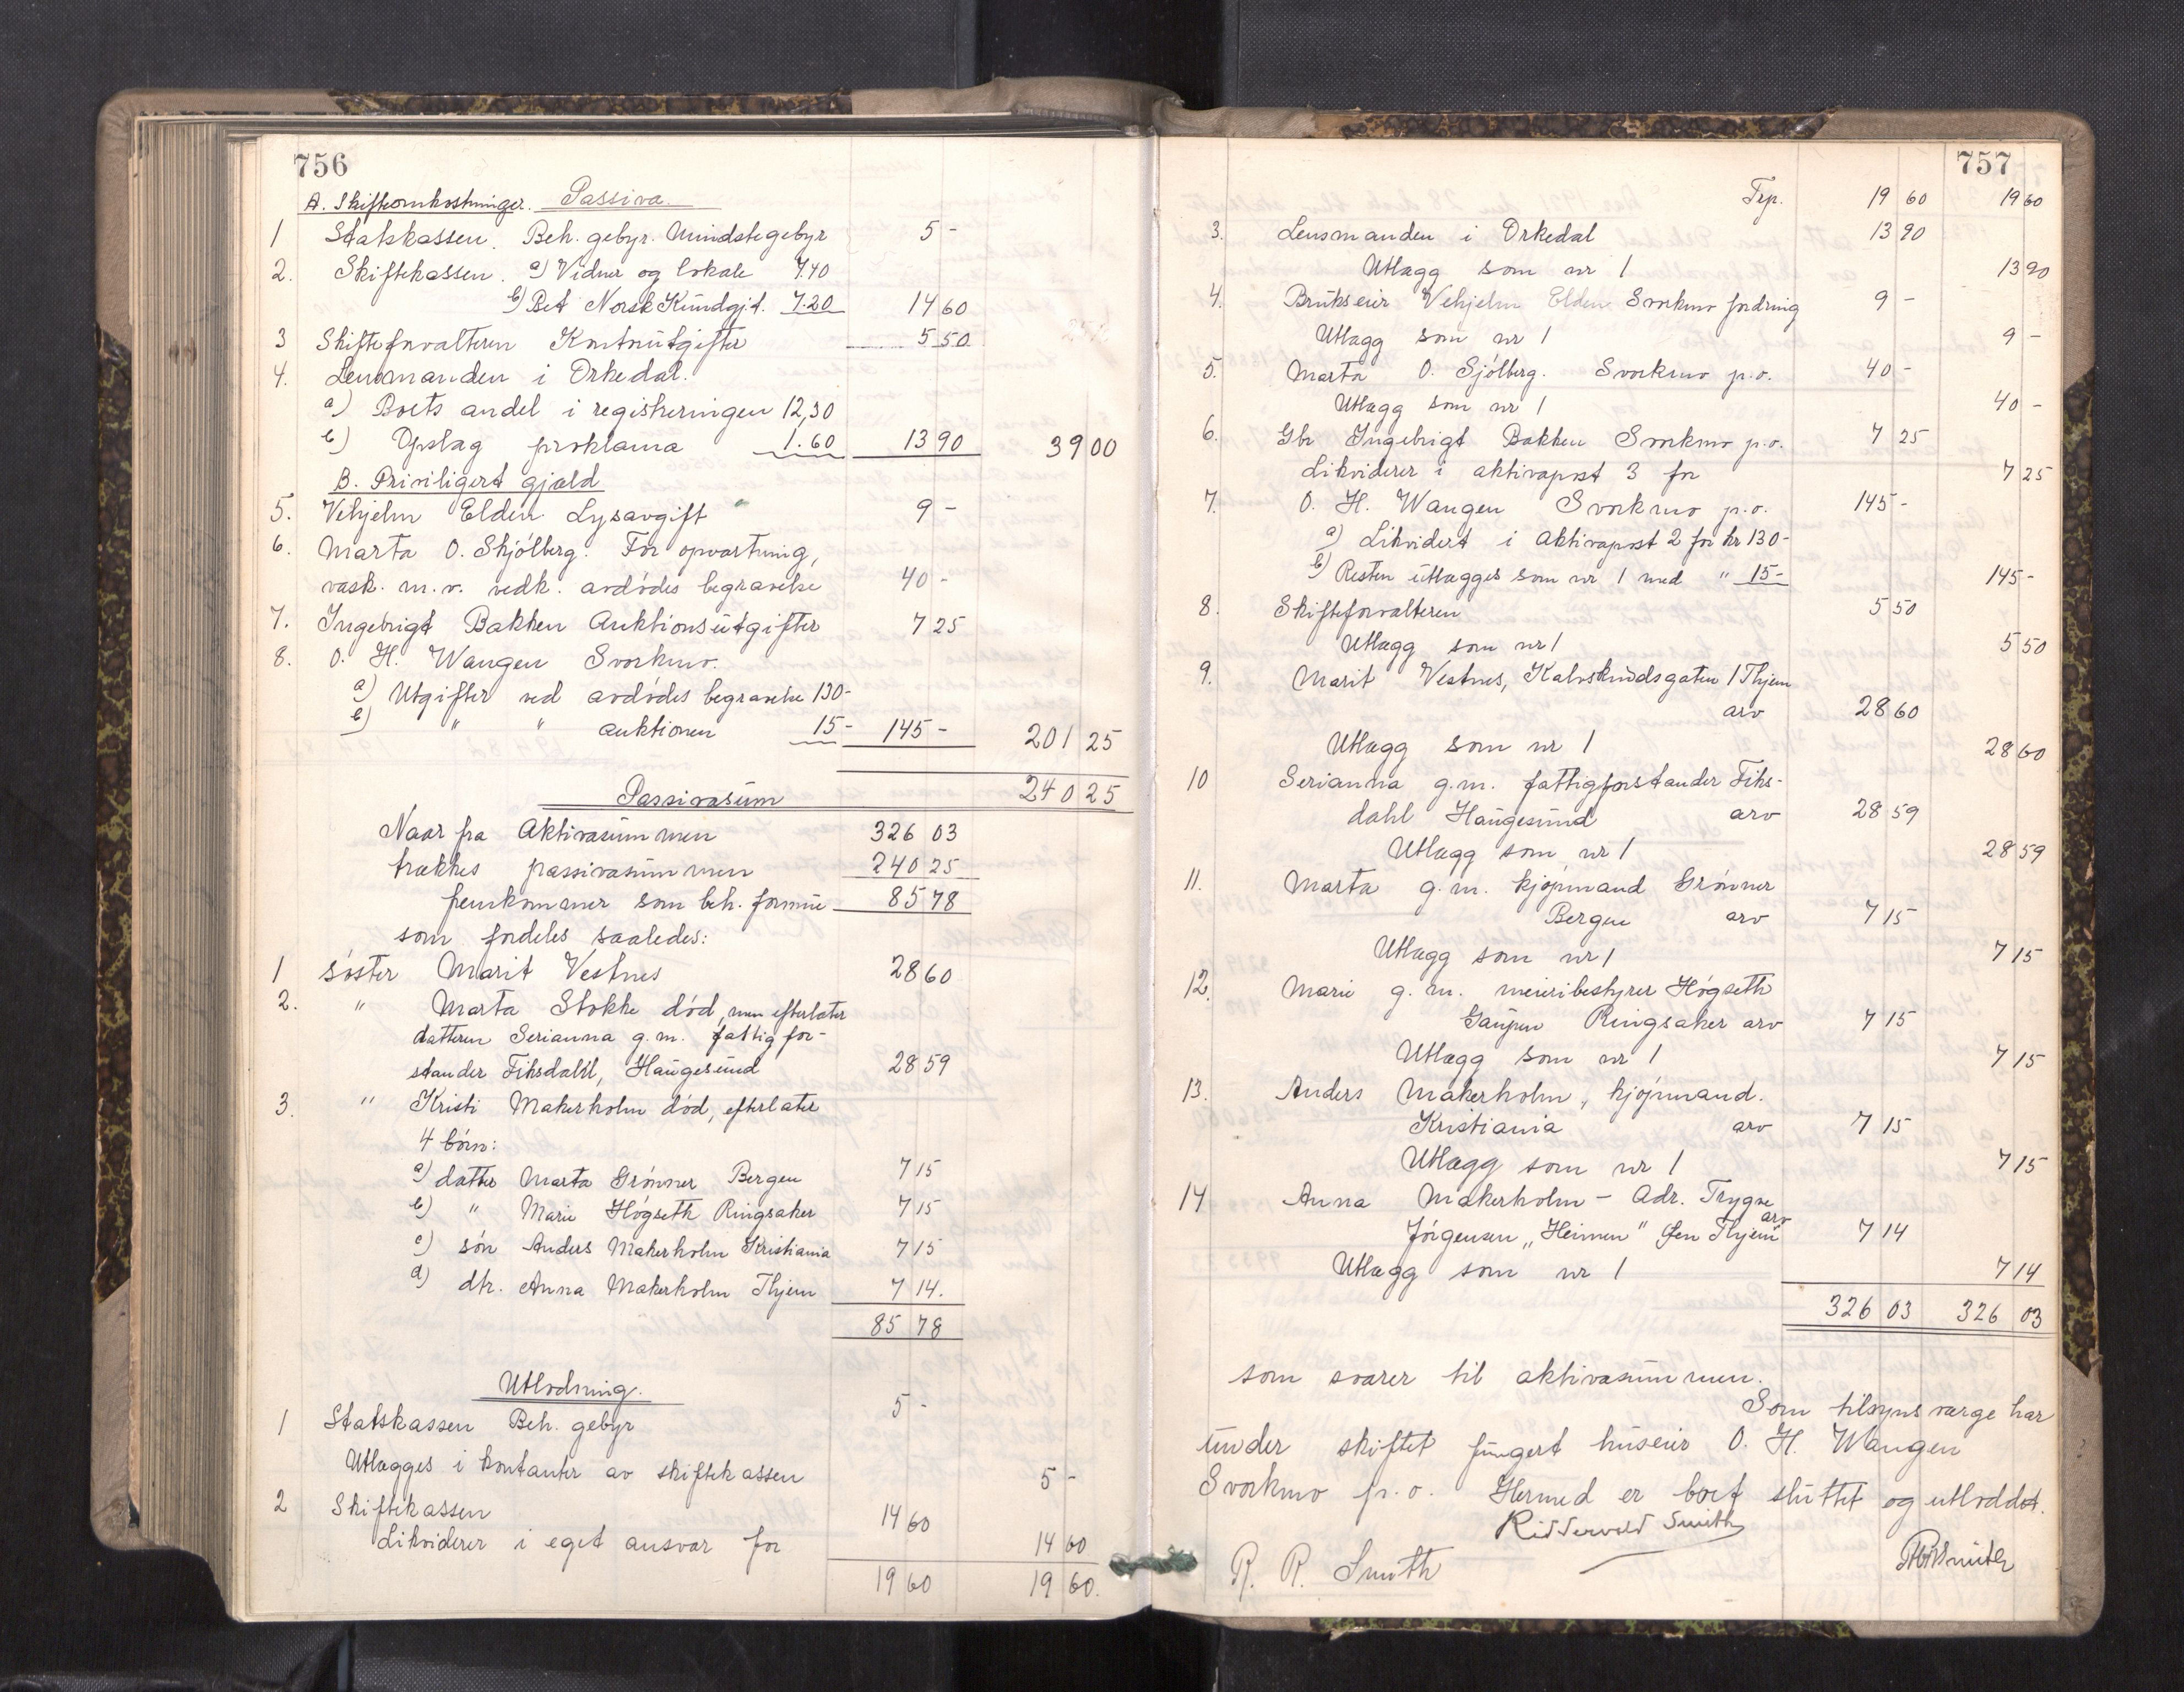 756
A. Skifteomkostninger. Passiva.
1 Statskassen. Beh. gebyr. Mindstegebyr 5 -
2. Skiftekassen. a) Vidner og lokale 7.40
b) Bet Norsk Kundgj.t. 7.20 14 60
3 Skifteforvalteren Kontorutgifter 5 50
4. Lensmanden i Orkedal.
a) Boets andel i registreringen 12,30
b) Opslag proklama 1.60 13 90 39 00
B. Priviligert gjæld
5. Vehjelm Elden Lysavgift 9 -
6. Marta O. Skjólberg. For opvartning,
vask. m.v. vedk. avdødes begravelse 40 -
7. Ingebrigt Bakken Auktionsutgifter 7 25
8. O. H. Wangen Svorkmo.
a) Utgifter ved avdødes begravelse 130-
b) " " auktionen 15- 145 - 201 25
Passivasum 240 25
Naar fra Aktivasummen 326 03
trækkes passivasummen 240 25
fremkommer som beh. formue 85 78
som fordeles saaledes:
1 søster Marit Vestnes 28 60
2. " Marta Stokke død, men efterlater
datteren Serianna g.m. fattigfor-
stander Fiksdahl, Haugesund 28 59
3. " Kristi Makerholm død, efterlater
4 børn:
a) datter Marta Grønner Bergen 7 15
b) " Marie Høgseth Ringsaker 7 15
c) søn Anders Makerholm Kristiania 7 15
d) dtr. Anna Makerholm Thjem 7 14.
85 78
Utlodning.
1 Statskassen Beh. gebyr 5 -
Utlægges i kontanter av skiftekassen 5 -
2 Skiftekassen 14 60
Likviderer i eget ansvar for 14 60
19 60 19 60.
757
Trp. 19 60 19 60
3. Lensmanden i Orkedal 13 90
Utlægg som nr 1 13 90
4. Brukseier Vehjelm Elden Svorkmo fordring 9 -
Utlægg som nr 1 9 -
5. Marta O. Sjólberg. Svorkmo p.o. 40 -
Utlægg som nr 1 40 -
6. Gbr Ingebrigt Bakken Svorkmo p.o. 7 25
Likviderer i aktivapost 3 for 7 25
7. O. H. Wangen Svorkmo p.o. 145 -
a) Likvidert i Aktivapost 2 for kr 130-
b) Resten utlægges som nr 1 med " 15- 145 -
8. Skifteforvalteren 5 50
Utlægg som nr 1 5 50
9. Marit Vestnes, Kalvskindsgaten 1 Thjem
arv 28 60
Utlægg som nr 1 28 60
10 Serianna g.m. fattigforstander Fiks-
dahl Haugesund arv 28 59
Utlægg som nr 1 28 59
11. Marta g.m. kjøpmand Grønner
Bergen arv 7 15
Utlægg som nr 1 7 15
12. Marie g.m. meieribestyrer Høgseth
Gaupen Ringsaker arv 7 15
Utlægg som nr 1 7 15
13. Anders Makerholm, kjøpmand.
Kristiania arv 7 15
Utlægg som nr 1 7 15
14 Anna Makerholm - Adr. Trygve
Jørgensen "Heimen" Thjem arv 7 14
Utlægg som nr 1 7 14
326 03 326 03
som svarer til aktivasummen.
Som tilsynsværge har
under skiftet fungert huseier O. H. Wangen
Svorkmo p.o. Hermed er boet sluttet og utloddet.
Ridderwold Smith
R. R. Smith